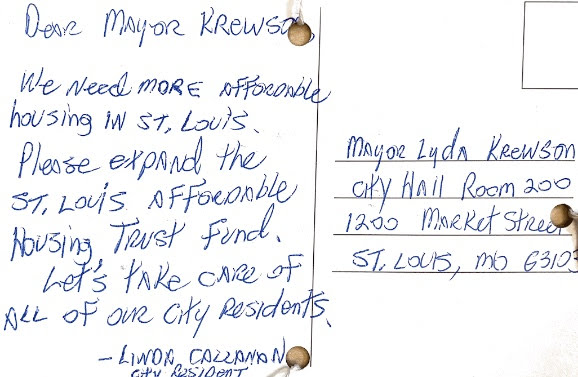 Dear Mayor Krewson
We Need more Affordable
housing in St. Louis.
Please expand the
St. Louis Affordable
Housing Trust Fund.
Let's take care of
All of our City Residents.
- Linda Callahan
City Resident
Mayor Lyda Krewson
City Hall Room 200
1200 Market Street
St. Louis, Mo 63103